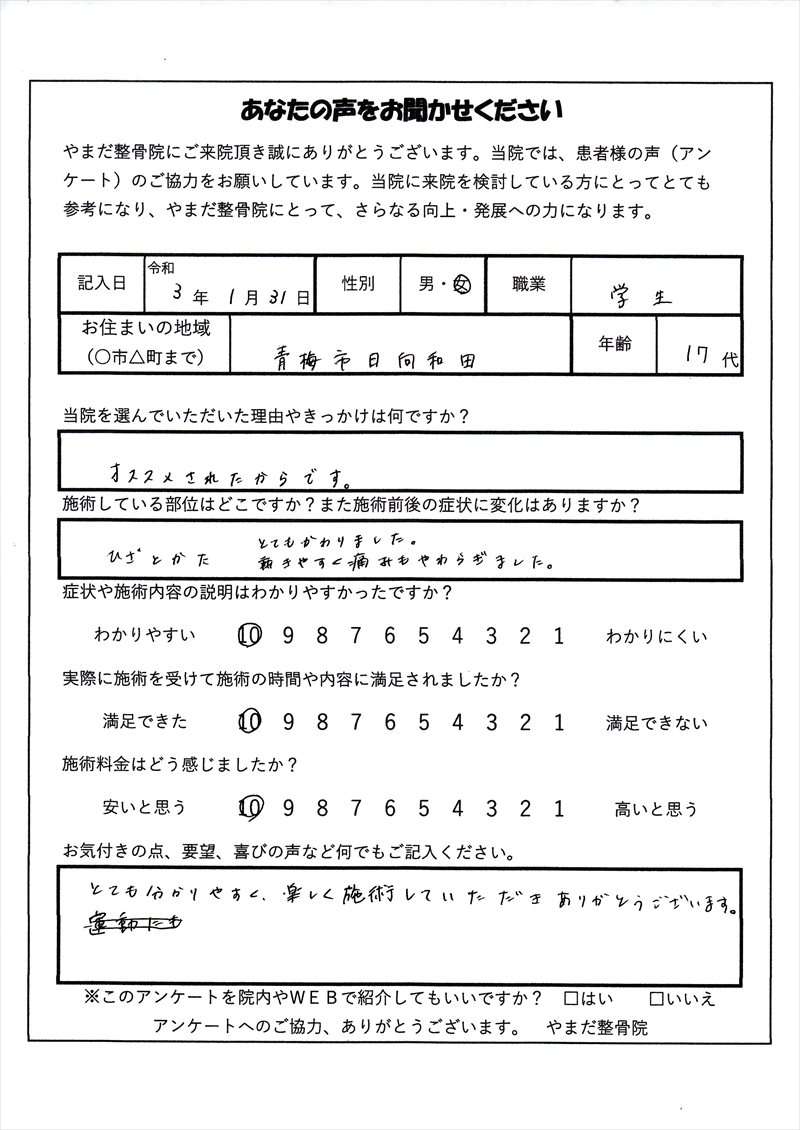 あなたの声をお聞かせください
やまだ整骨院にご来院頂き誠にありがとうございます。当院では、患者様の声（アン
ケート）のご協力をお願いしています。当院に来院を検討している方にとってとても
参考になり、やまだ整骨院にとって、さらなる向上・発展への力になります。
記入日 令和 3 年 1 月 31 日 性別 男・女 職業 学生
お住まいの地域 (○市△町まで) 青梅市日向和田 年齢 17 代
当院を選んでいただいた理由やきっかけは何ですか？
オススメされたからです。
施術している部位はどこですか？また施術前後の症状に変化はありますか？
ひざとかた とてもかわりました。
動きやすく痛みもやわらぎました。
症状や施術内容の説明はわかりやすかったですか？
わかりやすい 10 9 8 7 6 5 4 3 2 1 わかりにくい
実際に施術を受けて施術の時間や内容に満足されましたか？
満足できた 10 9 8 7 6 5 4 3 2 1 満足できない
施術料金はどう感じましたか？
安いと思う 10 9 8 7 6 5 4 3 2 1 高いと思う
お気付きの点、要望、喜びの声など何でもご記入ください。
とても分かりやすく、楽しく施術していただきありがとうございます。
運動にも
※このアンケートを院内やＷＥＢで紹介してもいいですか？ □はい □いいえ
アンケートへのご協力、ありがとうございます。 やまだ整骨院